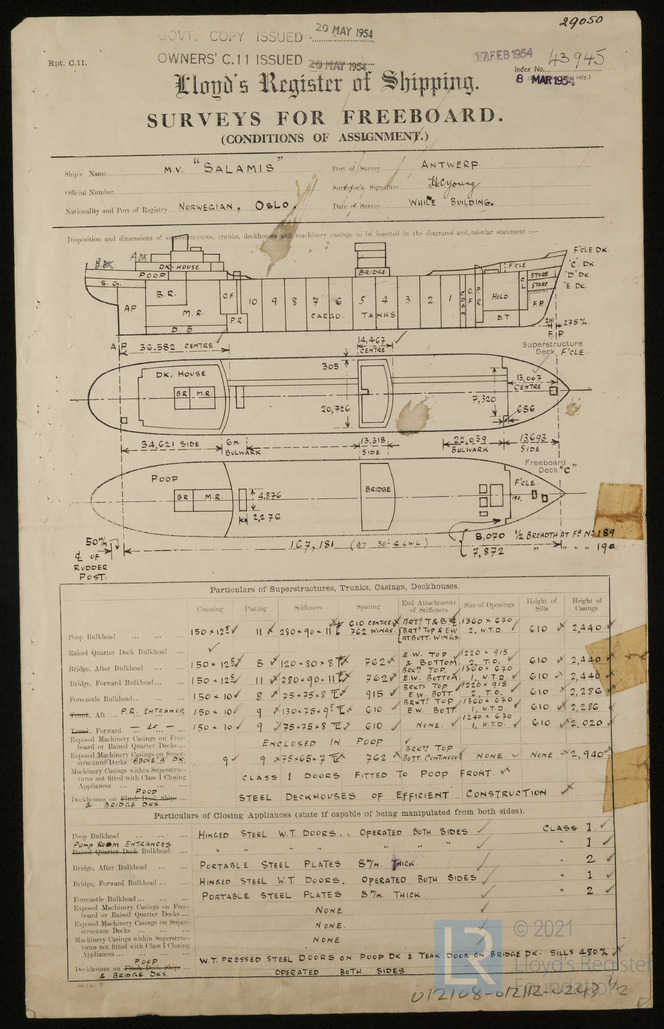 29050
GOVT. COPY ISSUED - 20 MAY 1954
Rpt. C.11.
OWNERS' C.11 ISSUED 20 MAY 1954
17 FEB 1954
Index No. 43945
8 MAR 1954
Lloyd's Register of Shipping.
SURVEYS FOR FREEBOARD.
(CONDITIONS OF ASSIGNMENT.)
Ship's Name M.V. "SALAMIS" Port of Survey ANTWERP
Official Number Surveyor's Signature HCYoung
Nationality and Port of Registry NORWEGIAN, OSLO. Date of Survey WHILE BUILDING.
Disposition and dimensions of superstructures, trunks, deckhouses and machinery casings to be inserted in the diagrams and tabular statement :—
B.DK A.DK DK. HOUSE POOP BRIDGE F'CLE F'CLE DK. "C" DK. "D" DK. "E" DK.
AP B.R. M.R. D.B. C.F. P.R. 10 9 8 7 6 5 4 3 2 1 HOLD D.T STORE STORE F.P.
CARGO TANKS
A P 36.582 CENTRE 14,467 CENTRE F P
Superstructure Deck F'CLE.
DK. HOUSE BR M.R. 305 20,726 7,320 13,007 CENTRE 686
34,621 SIDE 6m. BULWARK 13,318 SIDE 22,039 BULWARK 13693 SIDE
Freeboard Deck "C"
POOP BR M.R. 4,876 2,276 BRIDGE F'CLE
50% ℄ OF RUDDER POST.
167,181 (AT 30'-4 LWL)
8,070 1/2 BREADTH AT FR. No 189
7,872 " " " " 190
Particulars of Superstructures, Trunks, Casings, Deckhouses.
Coaming Plating Stiffeners Spacing End Attachments of Stiffeners Size of Openings Height of Sills Height of Casings
Poop Bulkhead 150 × 12.5 11 280×90×11 610 CENTRE 762 WINGS. BRTS T & B ℄. BRTS TOP & EW AT BOTT. WINGS. 1360 × 670 2. W.T.D. 610 2,440
Raised Quarter Deck Bulkhead
Bridge, After Bulkhead 150×12.5 8 120×80×8 762 E.W. TOP & BOTTOM 1220 × 915 2. T.O. 610 2,440
Bridge, Forward Bulkhead 150×12.5 11 280×90×11 762 BRKTS TOP E.W. BOTTOM 1360×670 1. W.T.D. 610 2,440
Forecastle Bulkhead 150 × 10 8 75×75×8 915 BRKTS TOP E.W. BOTT. 1220 × 915 2. T.O. 610 2,286
Trunk, Aft P.R. ENTRANCE 150 × 10 9 130×75×9.5 610 BRKTS TOP EW BOTT 1360 × 670 1. W.T.D. 610 2,286
Trunk, Forward — do — 150 × 10 9 75×75×8 610 NONE. 1240 × 670 1. W.T.D 610 2,020
Exposed Machinery Casings on Freeboard or Raised Quarter Decks ENCLOSED IN POOP
Exposed Machinery Casings on Superstructure Decks ABOVE 'A' DK. 9 9 75×65×7 762 BRKTS TOP BOTT CONTINUOUS NONE NONE 2,940
Machinery Casings within Superstructures not fitted with Class I Closing Appliances CLASS 1 DOORS FITTED TO POOP FRONT.
Deckhouses on Flush Deck Ships POOP & BRIDGE DKS STEEL DECKHOUSES OF EFFICIENT CONSTRUCTION
Particulars of Closing Appliances (state if capable of being manipulated from both sides).
Poop Bulkhead HINGED STEEL W.T DOORS.. OPERATED BOTH SIDES CLASS 1
PUMP ROOM ENTRANCES
Raised Quarter Deck Bulkhead " " " " " " " 1
Bridge, After Bulkhead PORTABLE STEEL PLATES 8 m/m. THICK " 2
Bridge, Forward Bulkhead HINGED STEEL W.T DOORS. OPERATED BOTH SIDES " 1
Forecastle Bulkhead PORTABLE STEEL PLATES 8 m/m THICK " 2
Exposed Machinery Casings on Freeboard or Raised Quarter Decks NONE
Exposed Machinery Casings on Superstructure Decks NONE.
Machinery Casings within Superstructures not fitted with Class I Closing Appliances NONE
Deckhouses on Flush Deck Ships POOP & BRIDGE DKS. W.T. PRESSED STEEL DOORS ON POOP DK & TEAK DOOR ON BRIDGE DK. SILLS 480
OPERATED BOTH SIDES
LR
© 2021
Lloyd's Register
Foundation
012108-012112-0243 1/2